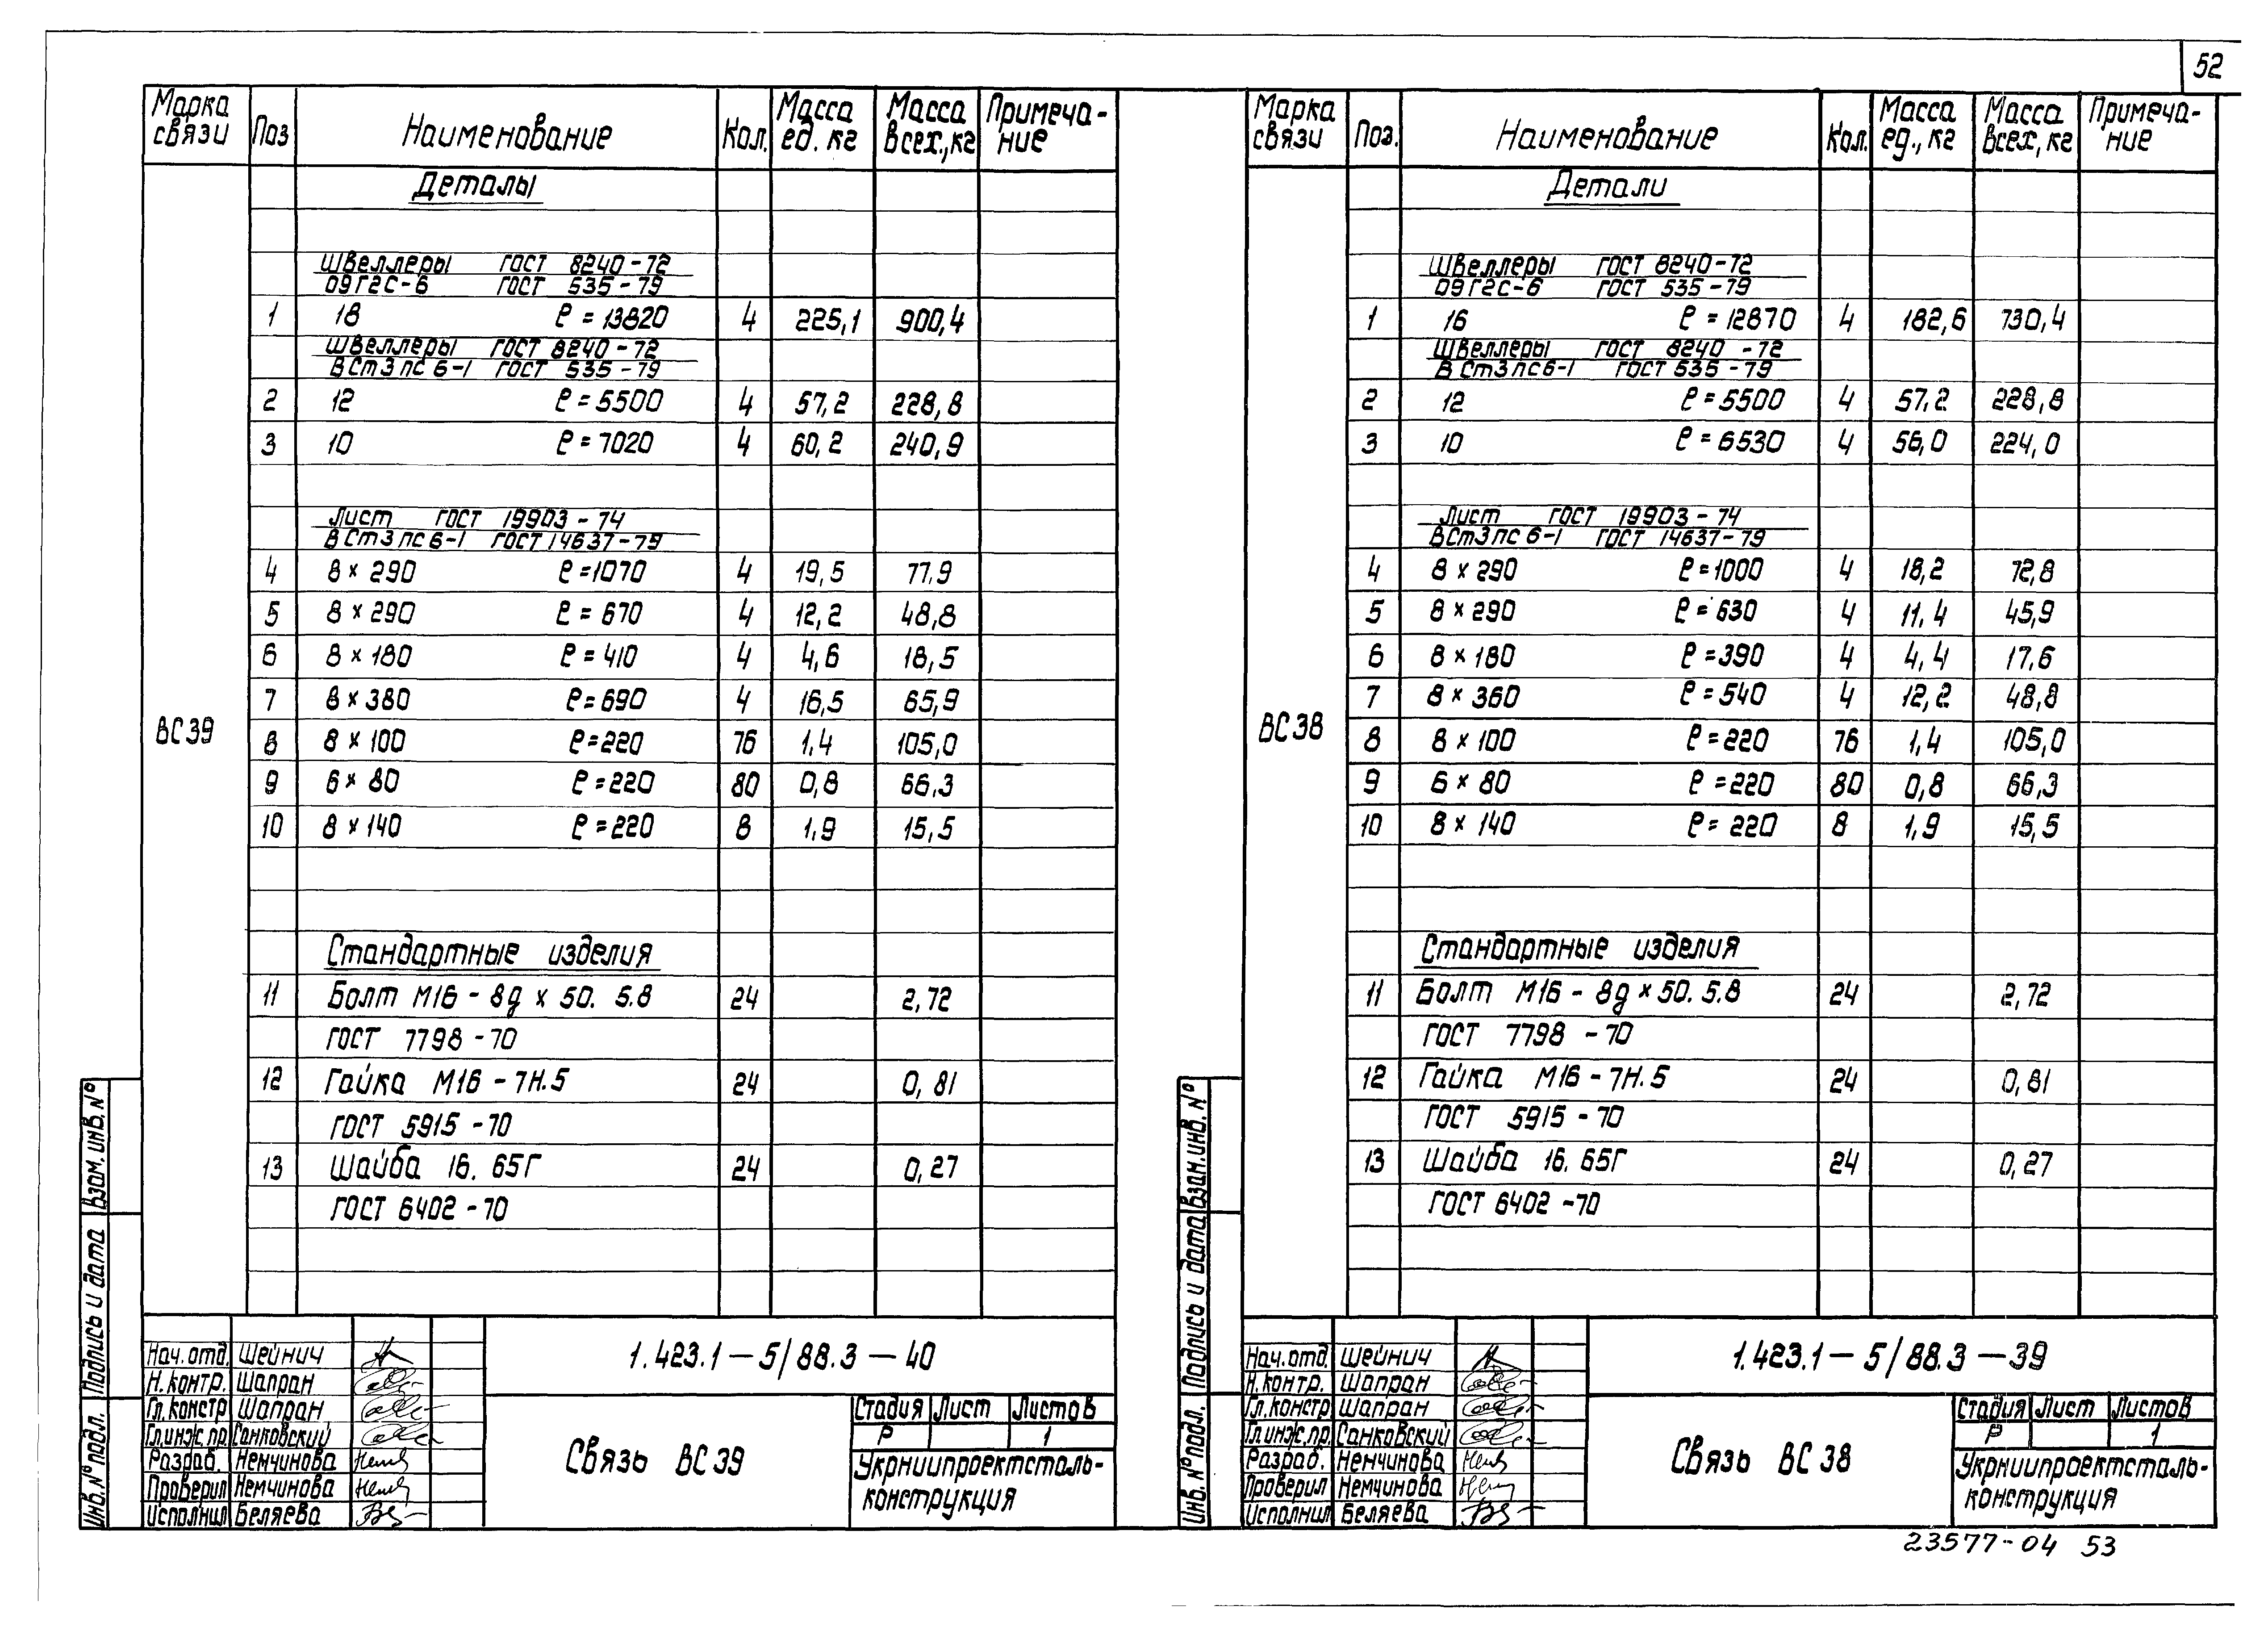 52
Марка связи Поз Наименование Кол. Масса ед. кг Масса всех, кг Примеча-ние
Деталы
Швеллеры ГОСТ 8240-72
09Г2С-6 ГОСТ 535-79
1 18 ℓ=13820 4 225,1 900,4
Швеллеры ГОСТ 8240-72
ВСт3пс6-1 ГОСТ 535-79
2 12 ℓ=5500 4 57,2 228,8
3 10 ℓ=7020 4 60,2 240,9
Лист ГОСТ 19903-74
ВСт3пс6-1 ГОСТ 14637-79
4 8×290 ℓ=1070 4 19,5 77,9
5 8×290 ℓ=670 4 12,2 48,8
6 8×180 ℓ=410 4 4,6 18,5
7 8×380 ℓ=690 4 16,5 65,9
ВС39
8 8×100 ℓ=220 76 1,4 105,0
9 6×80 ℓ=220 80 0,8 66,3
10 8×140 ℓ=220 8 1,9 15,5
Стандартные изделия
11 Болт М16-8g×50.5.8 24 2,72
ГОСТ 7798-70
12 Гайка М16-7Н.5 24 0,81
ГОСТ 5915-70
13 Шайба 16.65Г 24 0,27
ГОСТ 6402-70
Инв.№подл. Подпись и дата Взам.инв.№
1.423.1-5/88.3-40
Нач.отд. Шейнич
Н.контр. Шапран
Гл.констр Шапран
Гл.инж.пр. Санковский
Разраб. Немчинова
Проверил Немчинова
Исполнил Беляева
Связь ВС39
Стадия Лист Листов
Р 1
Укрниипроектсталь-
конструкция
Марка связи Поз. Наименование Кол. Масса ед., кг Масса всех, кг Примеча-ние
Детали
Швеллеры ГОСТ 8240-72
09Г2С-6 ГОСТ 535-79
1 16 ℓ=12870 4 182,6 730,4
Швеллеры ГОСТ 8240-72
ВСт3пс6-1 ГОСТ 535-79
2 12 ℓ=5500 4 57,2 228,8
3 10 ℓ=6530 4 56,0 224,0
Лист ГОСТ 19903-74
ВСт3пс6-1 ГОСТ 14637-79
4 8×290 ℓ=1000 4 18,2 72,8
5 8×290 ℓ=630 4 11,4 45,9
6 8×180 ℓ=390 4 4,4 17,6
7 8×360 ℓ=540 4 12,2 48,8
ВС38
8 8×100 ℓ=220 76 1,4 105,0
9 6×80 ℓ=220 80 0,8 66,3
10 8×140 ℓ=220 8 1,9 15,5
Стандартные изделия
11 Болт М16-8g×50.5.8 24 2,72
ГОСТ 7798-70
12 Гайка М16-7Н.5 24 0,81
ГОСТ 5915-70
13 Шайба 16.65Г 24 0,27
ГОСТ 6402-70
Инв.№подл. Подпись и дата Взам.инв.№
1.423.1-5/88.3-39
Нач.отд. Шейнич
Н.контр. Шапран
Гл.констр Шапран
Гл.инж.пр. Санковский
Разраб. Немчинова
Проверил Немчинова
Исполнил Беляева
Связь ВС38
Стадия Лист Листов
Р 1
Укрниипроектсталь-
конструкция
23577-04 53